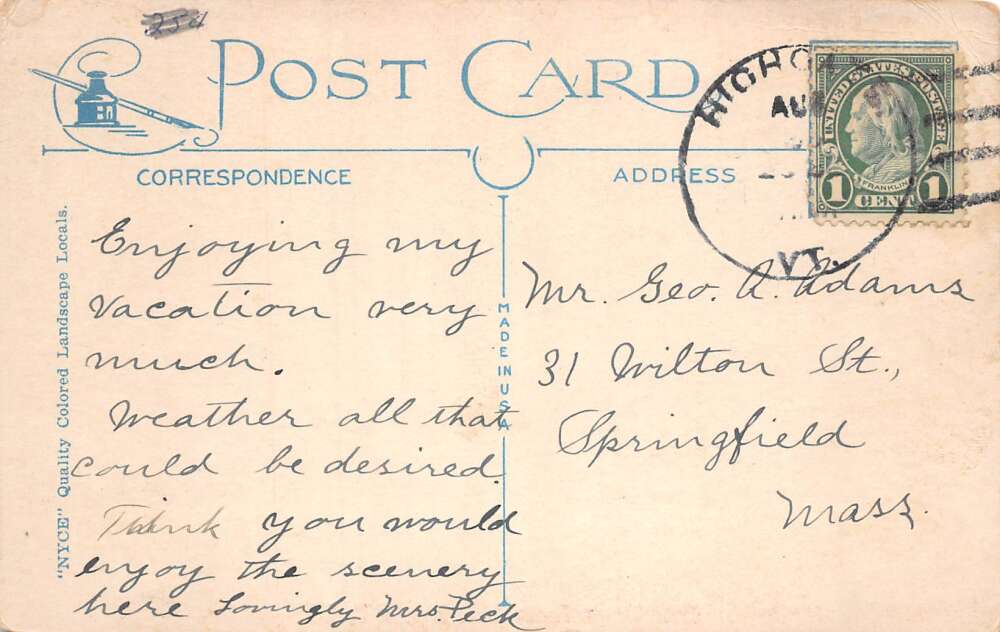 254
POST CARD
CORRESPONDENCE
ADDRESS
"NYCE" Quality Colored Landscape Locals.
MADE IN U.S.A
AUG
VT.
UNITED STATES POSTAGE
FRANKLIN
1 CENT 1
Enjoying my
vacation very
much.
Weather all that
could be desired
Think you would
enjoy the scenery
here Lovingly Mrs. Peck
Mr. Geo. A. Adams
31 Wilton St.,
Springfield
Mass.